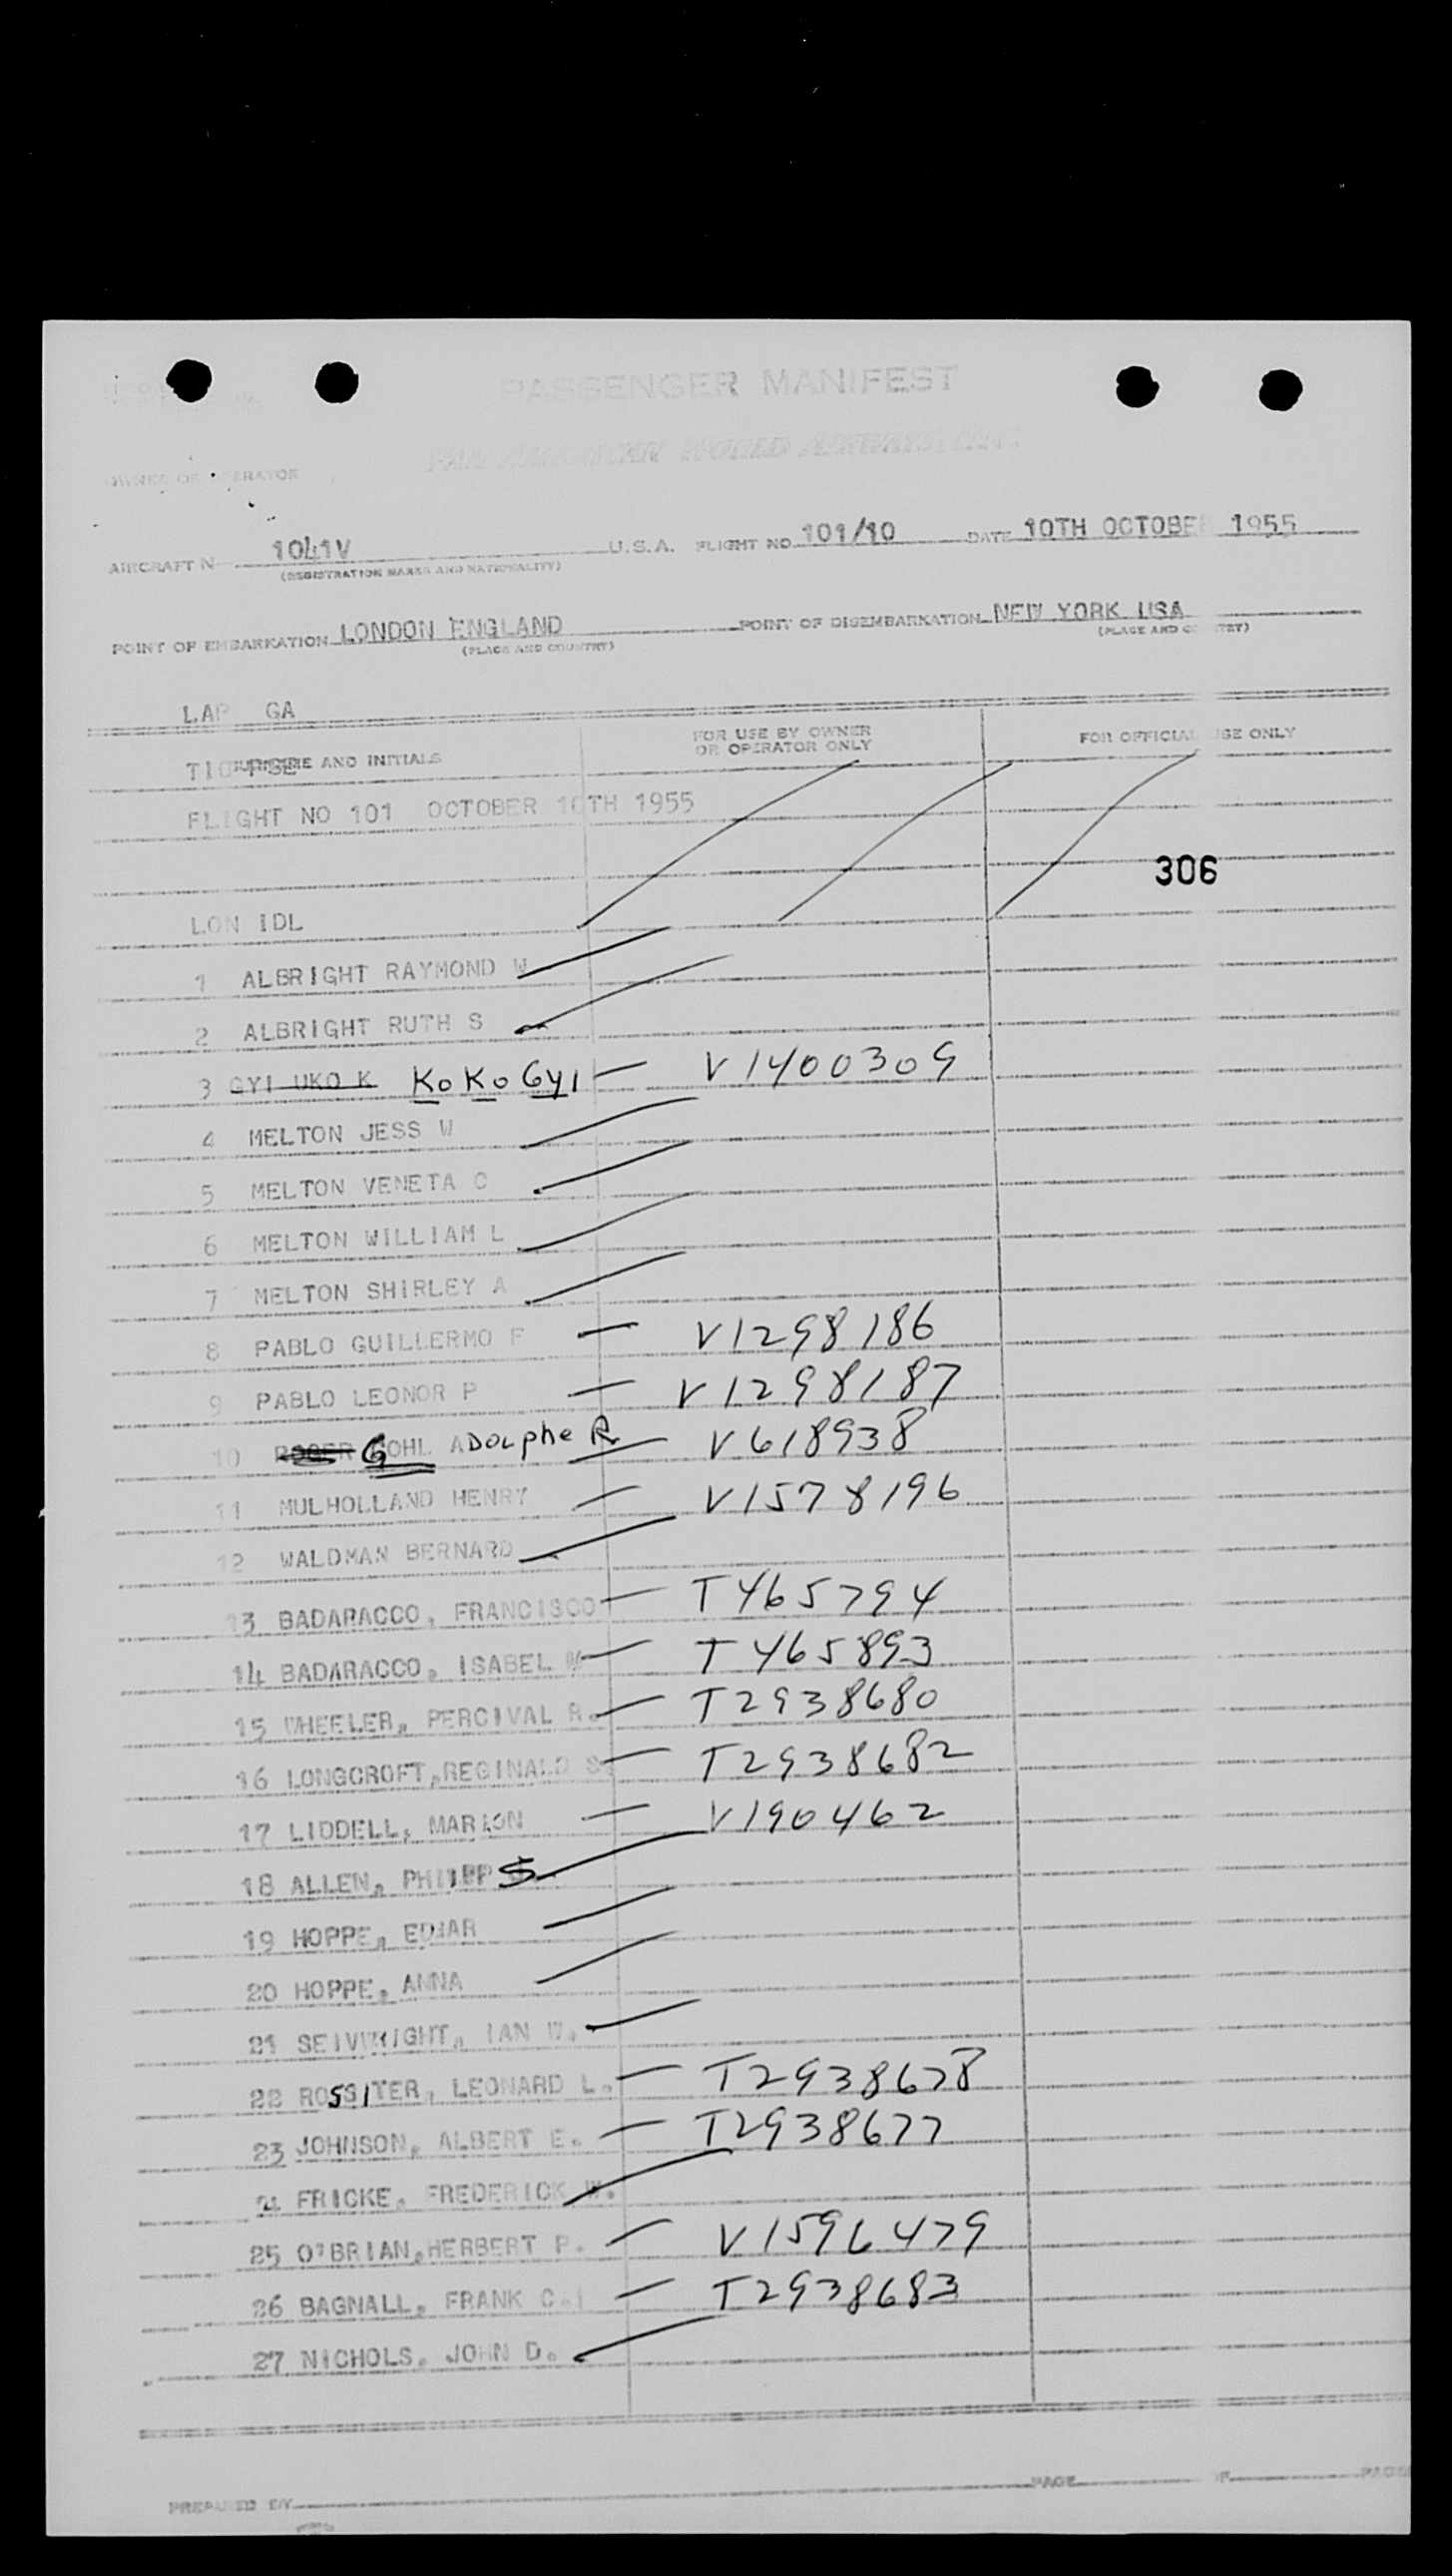 PASSENGER MANIFEST
PAN AMERICAN WORLD AIRWAYS, INC.
OWNER OR OPERATOR
AIRCRAFT N 1041V U.S.A. FLIGHT NO 101/10 DATE 10TH OCTOBER 1955
(REGISTRATION MARKS AND NATIONALITY)
POINT OF EMBARKATION LONDON ENGLAND POINT OF DISEMBARKATION NEW YORK USA
(PLACE AND COUNTRY) (PLACE AND COUNTRY)
LAP GA
SURNAME AND INITIALS FOR USE BY OWNER OR OPERATOR ONLY FOR OFFICIAL USE ONLY
FLIGHT NO 101 OCTOBER 10TH 1955
306
LON IDL
1 ALBRIGHT RAYMOND W
2 ALBRIGHT RUTH S
3 GYI UKO K Ko Ko Gyi — V1400309
4 MELTON JESS W
5 MELTON VENETA C
6 MELTON WILLIAM L
7 MELTON SHIRLEY A
8 PABLO GUILLERMO F — V1298186
9 PABLO LEONOR P — V1298187
10 ROGER GOHL ADOLPHE R — V618938
11 MULHOLLAND HENRY — V1578196
12 WALDMAN BERNARD
13 BADARACCO, FRANCISCO — T465794
14 BADARACCO, ISABEL M — T465893
15 WHEELER, PERCIVAL R. — T2938680
16 LONGCROFT, REGINALD S. — T2938682
17 LIDDELL, MARION — V190462
18 ALLEN, PHILIPP S
19 HOPPE, EDJAR
20 HOPPE, ANNA
21 SEIVWRIGHT, IAN W.
22 ROSSITER, LEONARD L. — T2938678
23 JOHNSON, ALBERT E. — T2938677
24 FRICKE, FREDERICK W.
25 O'BRIAN, HERBERT P. — V1596479
26 BAGNALL, FRANK C. — T2938683
27 NICHOLS, JOHN D.
PREPARED BY PAGE OF PAGES